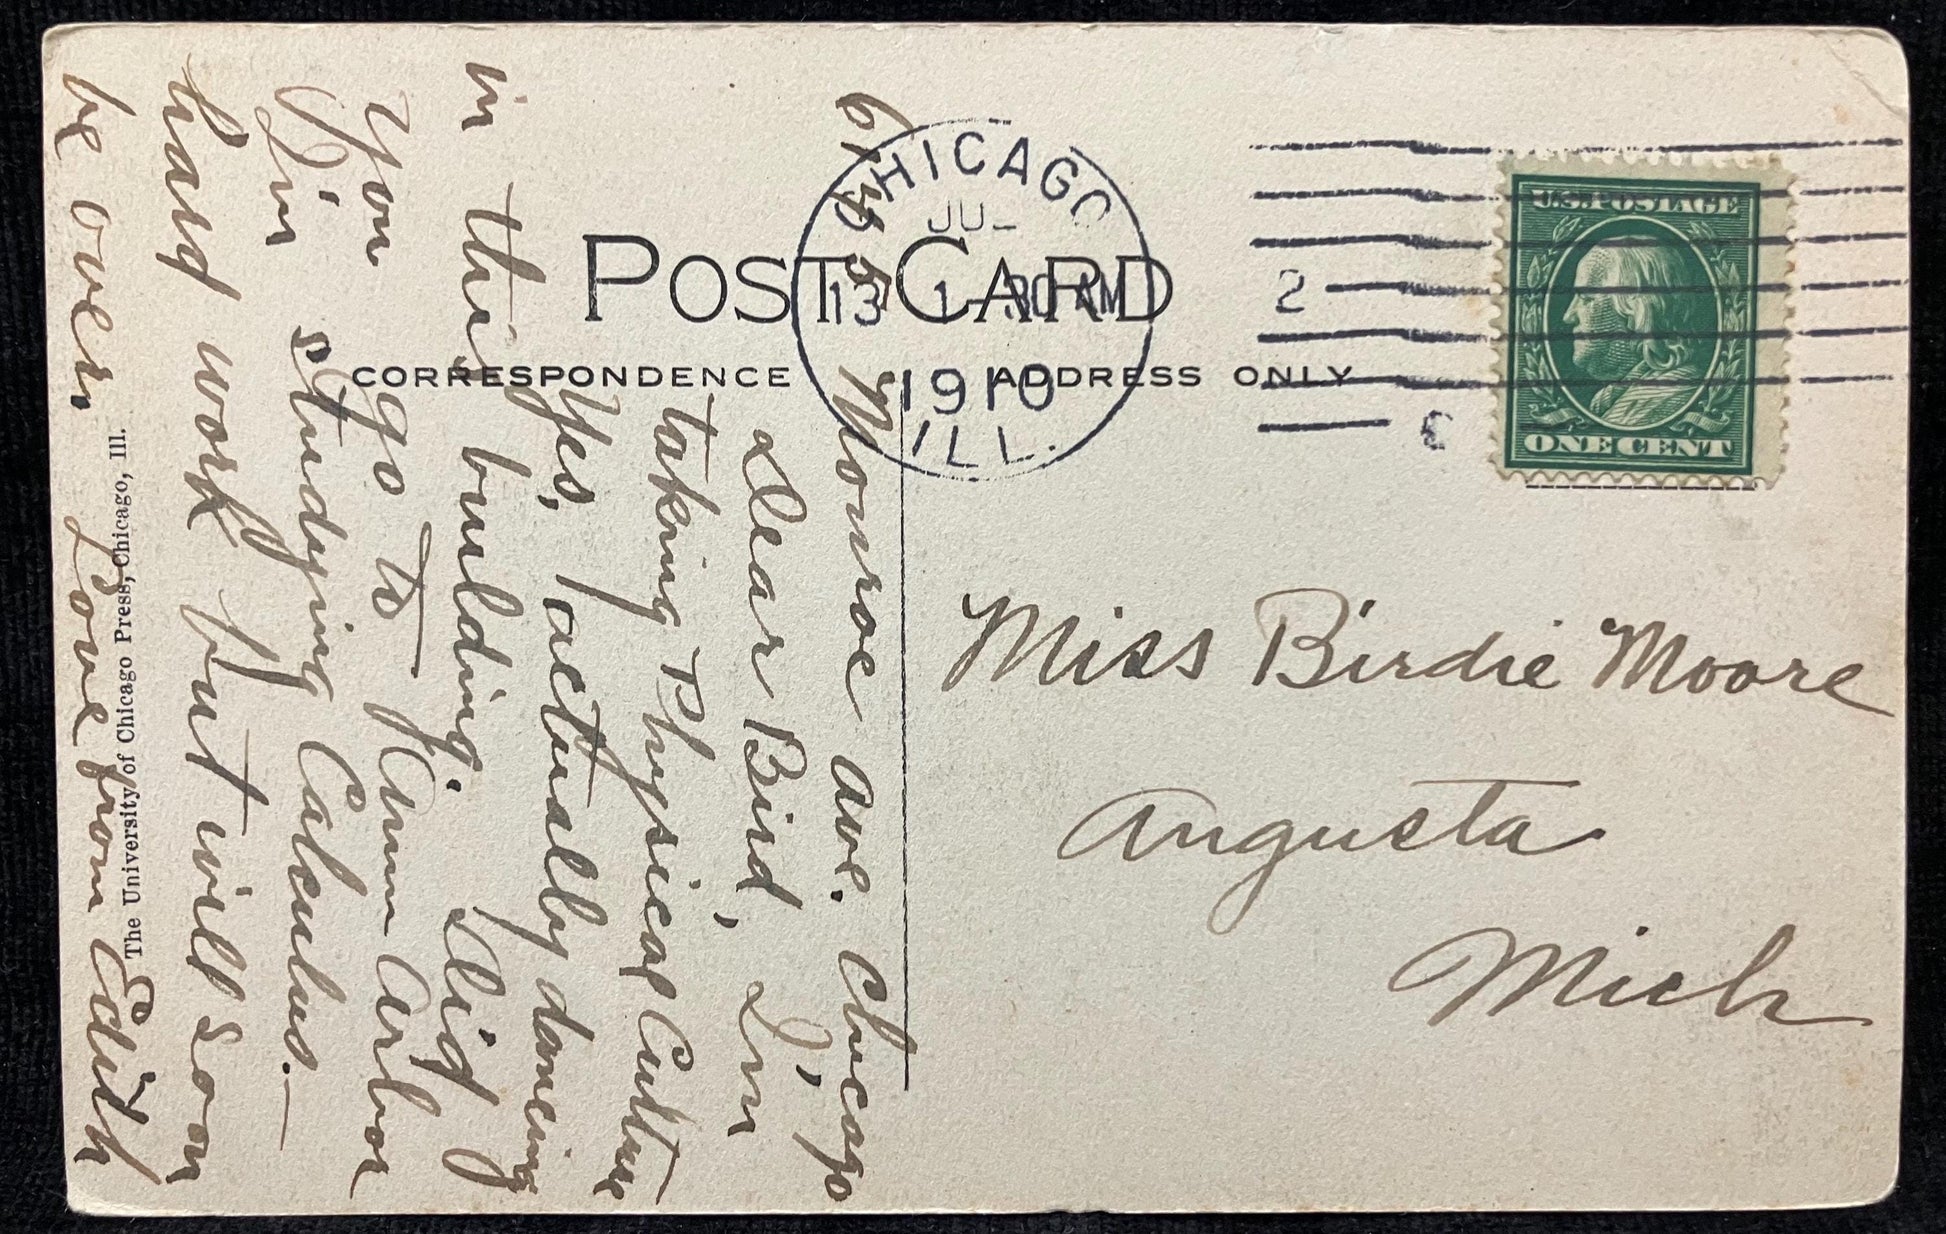 POST CARD
CORRESPONDENCE
ADDRESS ONLY
CHICAGO
JUL
13 1-30 AM
1910
ILL.
2
U.S. POSTAGE
ONE CENT
Monroe Ave. Chicago
Dear Bird, I'm
taking Physical Culture
Yes, actually dancing
in this building. Did
you go to Ann Arbor
I'm studying Calculus. —
Hard work but will soon
be over. Love from Edith
The University of Chicago Press, Chicago, Ill.
Miss Birdie Moore
Augusta
Mich